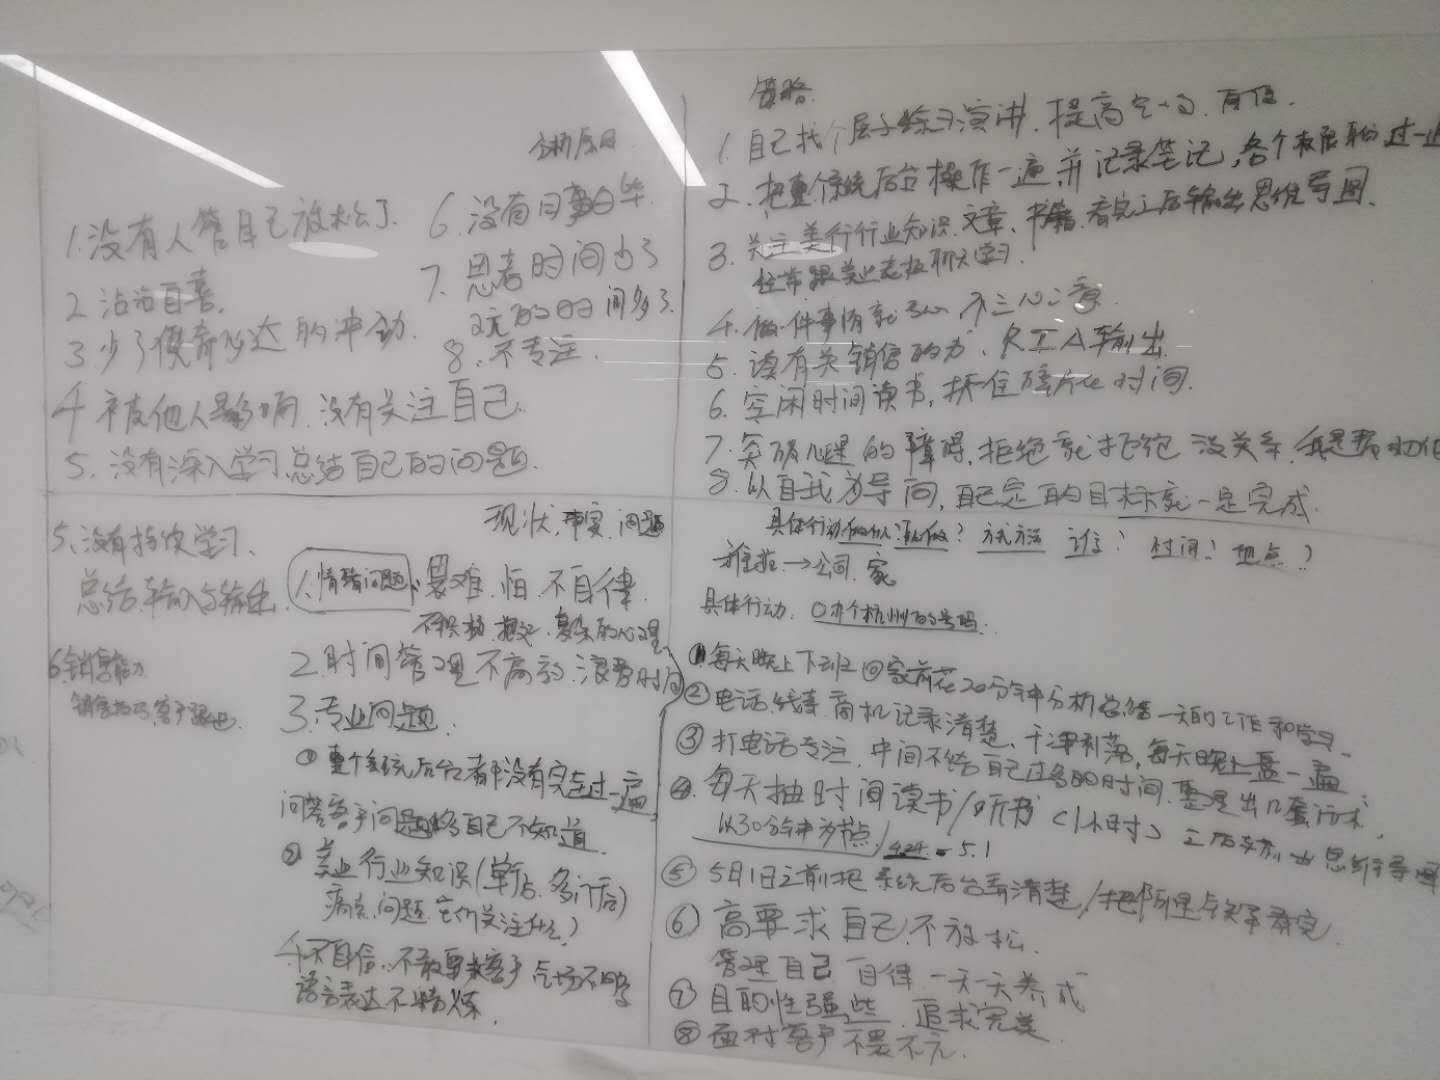 分析原因
1. 没有人管自己放松了
2 沾沾自喜.
3 少了 的冲动.
4 被他人影响. 没有关注自己.
5. 没有深入学习总结自己的问题.
6. 没有目
7. 思考时间少了
玩的时间多了.
8. 不专注.
策略.
1. 自己找个 子练习演讲. 提高 自信.
2. 把整个系统后台操作一遍并记录笔记, 各个 过一
3. 关注美行行业知识. 文章、书籍. 看完之后输出思维导图.
经常跟美业老板聊天学习.
4. 做一件事情就 心 不三心二意.
5. 读有关销售的 . RIA输出.
6. 空闲时间读书, 抓住碎片化时间.
7. 突破心里的障碍, 拒绝就拒绝 没关系. 我是帮
8. 以自我为导向, 自己定的目标就一定完成.
现状. 事实. 问题
1. 情绪问题: 畏难. 怕. 不自律.
不积极. 抱怨. 复杂的心理
2. 时间管理不高效. 浪费时间
3. 专业问题.
① 整个系统后台都没有完全过一遍
问答客户问题 自己不知道.
② 美业行业知识(单店. 多门店)
痛点. 问题 它们关注什么?)
4. 不自信. 不敢要求客户 气场不
语言表达不精炼.
5. 没有持续学习、
总结. 输入与输出
6. 销售能力
销售技巧, 客户
具体行动 做什么? 怎么做? 方式方法 谁? 时间? 地点?
→公司. 家
具体行动. 个杭州的号码.
① 每天晚上下班回家前花20分钟分析总结一天的工作和学习.
② 电话. 线索. 商机记录清楚、干净利落, 每天晚上盘一遍
③ 打电话专注, 中间不给自己过多的时间. 整理出几套话术.
④. 每天抽时间读书/听书 (1小时) 之后 出思维导图
以30分钟为节点/ 4.24 - 5.1
⑤ 5月1日之前把系统后台弄清楚, /把 看完.
⑥ 高要求自己. 不放松.
管理自己 自律 一天一天养成
⑦ 目的性强些. 追求完美
⑧ 面对客户不畏不亢.